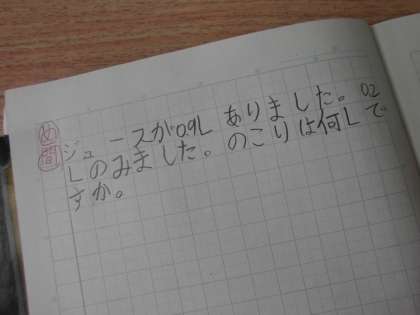 め
問 ジュースが0.9L ありました。 02
Lのみました。のこりは何Lで
すか。